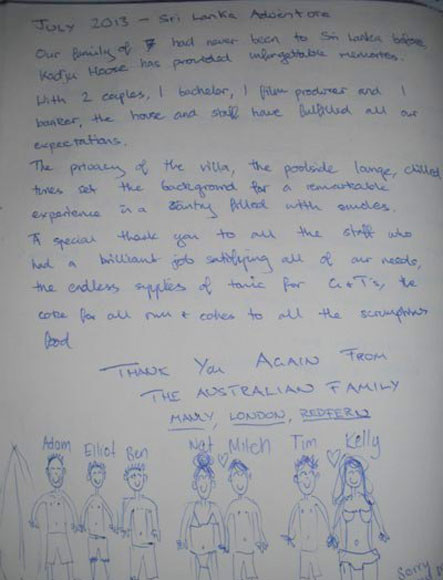 July 2013 - Sri Lanka Adventure
Our family of 7 had never been to Sri Lanka before,
Kadju House has provided unforgettable memories.
With 2 couples, 1 bachelor, 1 film producer and 1
banker, the house and staff have fulfilled all our
expectations.
The privacy of the villa, the poolside lounge, chilled
tunes set the background for a remarkable
experience in a country filled with smiles.
A special thank you to all the staff who
had a brilliant job satisfying all of our needs,
the endless supplies of tonic for G+T's, the
coke for all rum + cokes to all the scrumptious
food.
THANK YOU AGAIN FROM
THE AUSTRALIAN FAMILY
MANLY, LONDON, REDFERN
Adam Elliot Ben Nat Mitch Tim Kelly
Sorry